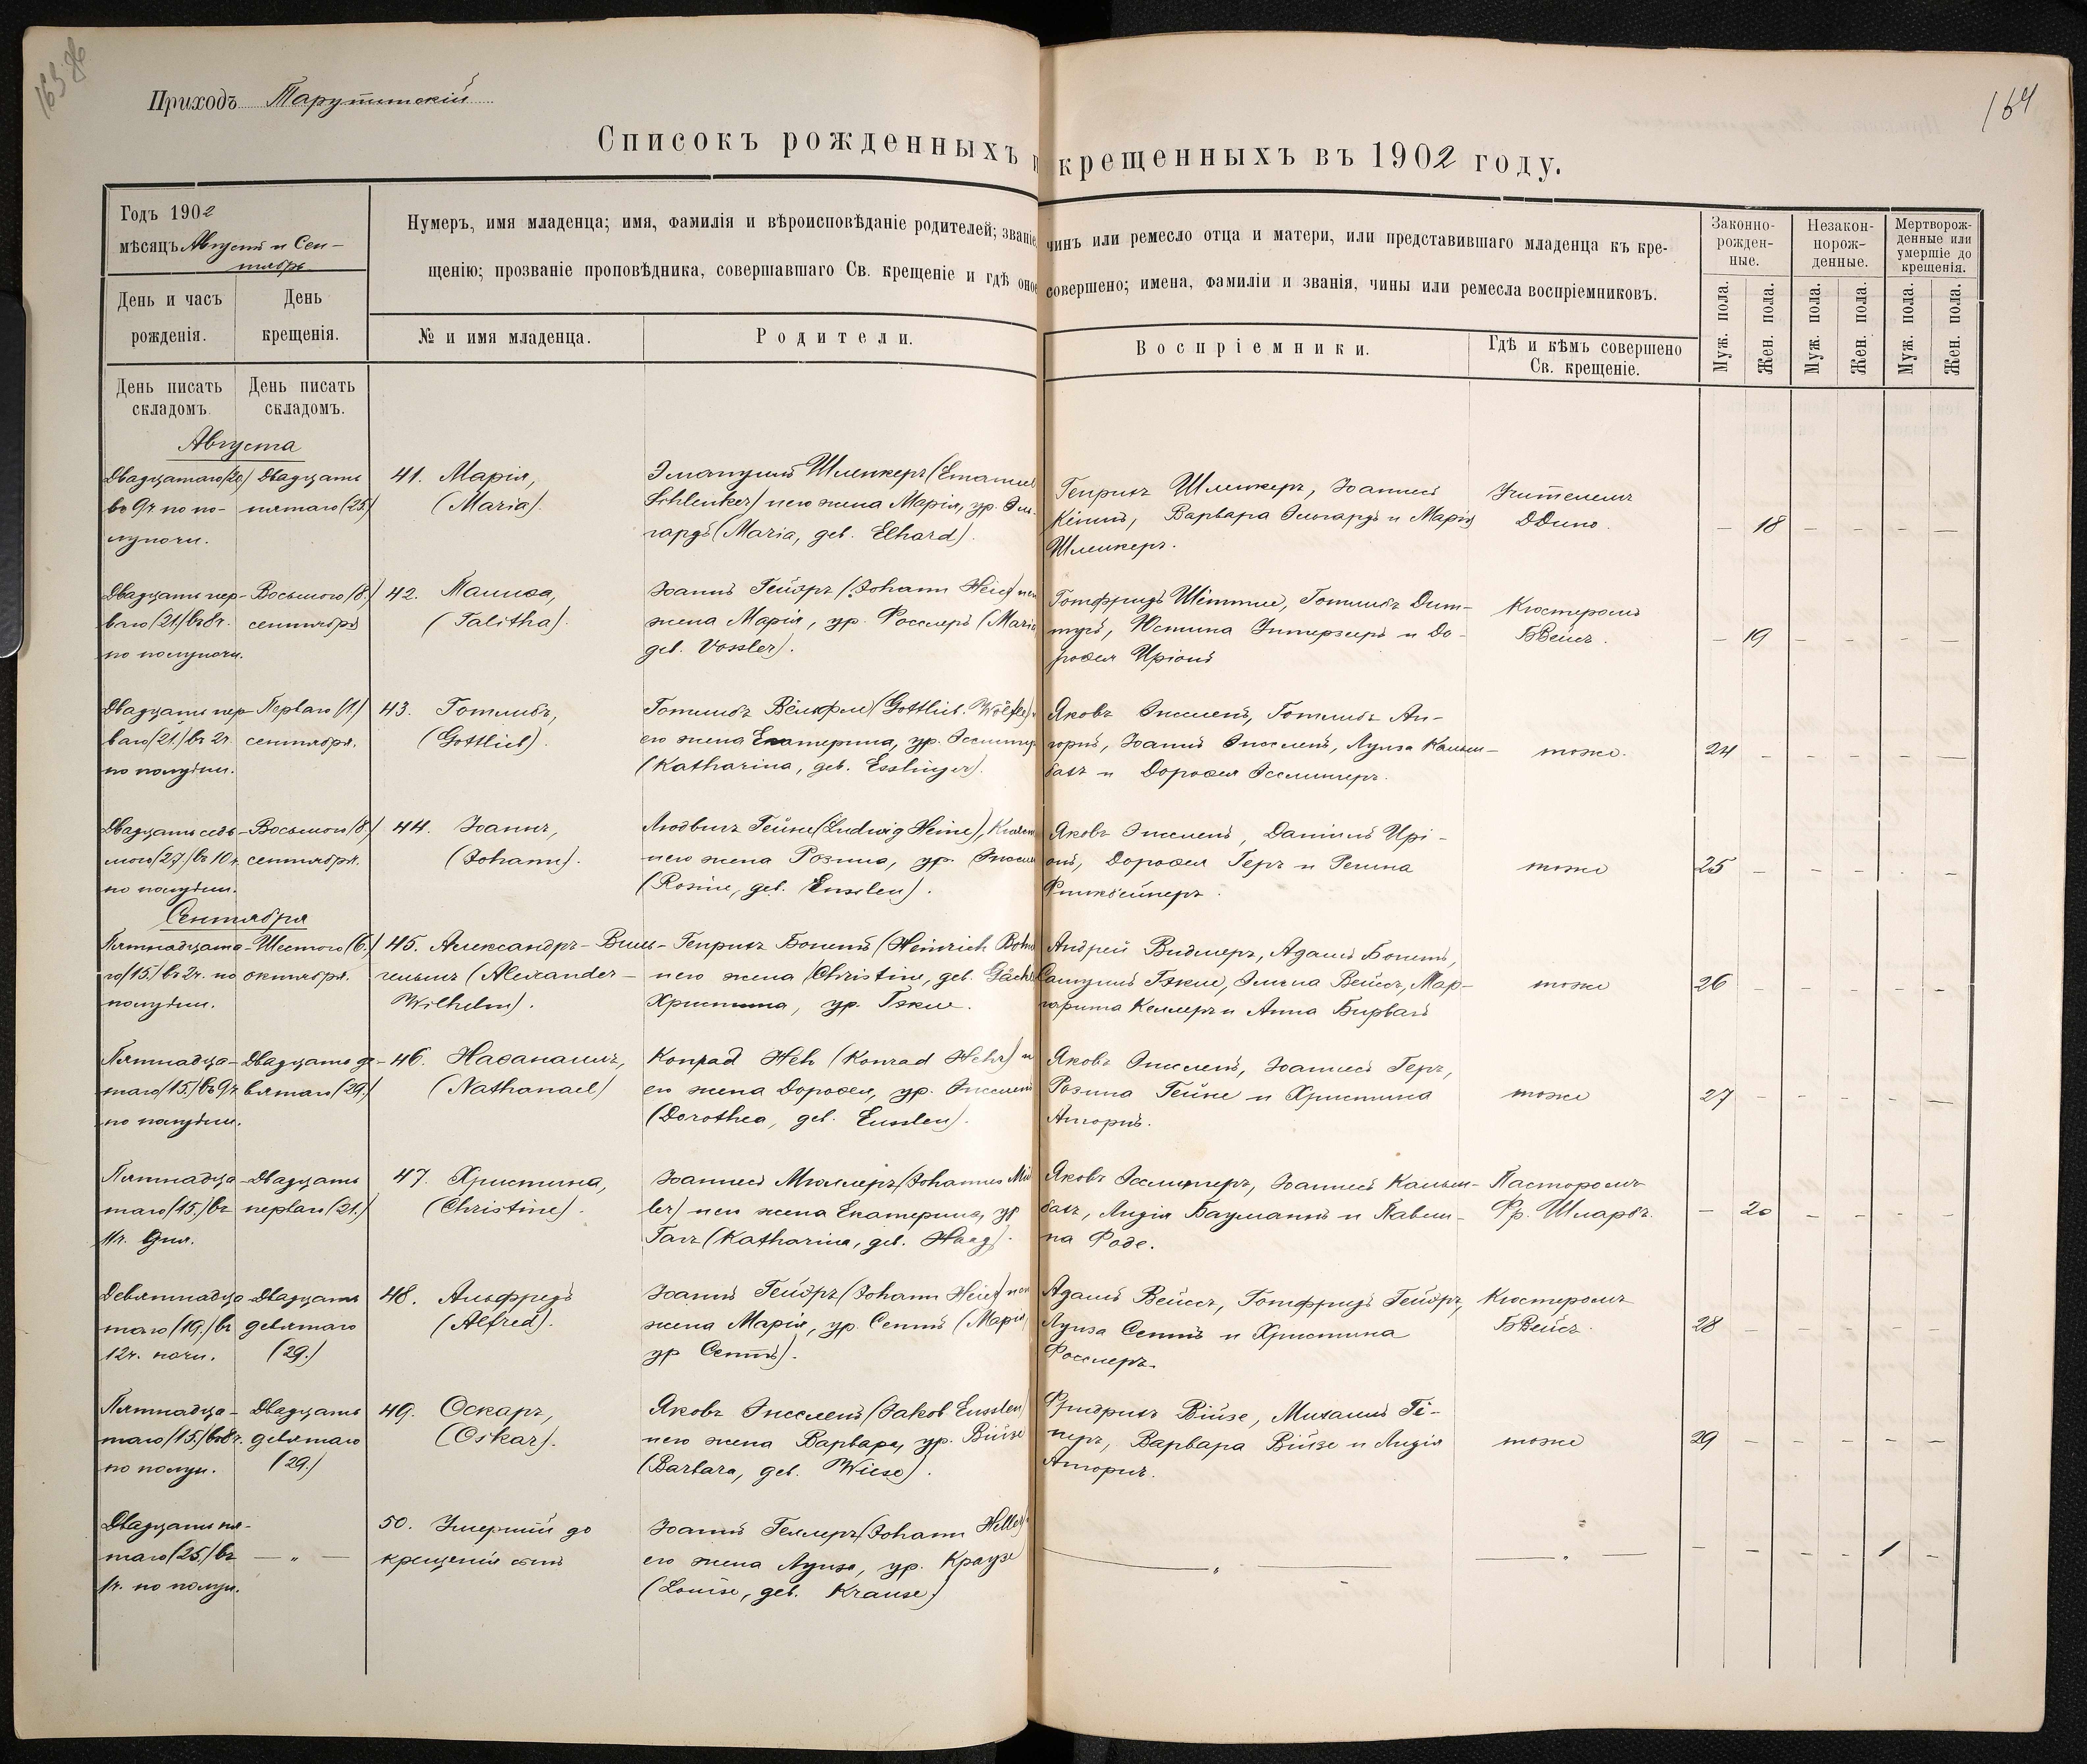 163 об
164
Приходъ Тарутинскій
Списокъ рожденныхъ и крещенныхъ въ 1902 году.
Годъ 1902
мѣсяцъ Августъ и Сен-
тябрь
Нумеръ, имя младенца; имя, фамилія и вѣроисповѣданіе родителей; званіе, чинъ или ремесло отца и матери, или представившаго младенца къ кре-
щенію; прозваніе проповѣдника, совершавшаго Св. крещеніе и гдѣ оное совершено; имена, фамиліи и званія, чины или ремесла воспріемниковъ.
Законно-
рожден-
ные.
Незакон-
норож-
денные.
Мертворож-
денные или
умершіе до
крещенія.
День и часъ
рожденія.
День
крещенія.
№ и имя младенца.
Родители.
Воспріемники.
Гдѣ и кѣмъ совершено
Св. крещеніе.
Муж. пола.
Жен. пола.
Муж. пола.
Жен. пола.
Муж. пола.
Жен. пола.
День писать
складомъ
День писать
складомъ.
Августа
Двадцатаго (20.)
въ 9ч по по-
луночи.
Двадцать
пятаго (25.)
41. Марія,
(Maria).
Эмануилъ Шленкеръ (Emanuel
Schlenker) и его жена Марія, ур. Эль-
гардъ (Maria, geb. Elhard).
Генрихъ Шленкеръ, Іоаннесъ
Варвара Эльгардъ и Марія
Шленкеръ.
Учителемъ
ДДино.
— 18 — — — —
Двадцать пер-
ваго (21.) въ 6ч.
по полуночи.
Восьмого (8.)
сентября
42. Талиѳа,
(Talitha).
Іоаннъ Гейеръ (Johann Heier) и его
жена Марія, ур. Фосслеръ (Maria
geb. Vossler).
Готфридъ Шёттле, Готлибъ Дит-
Юстина и До-
роѳея Иріонъ
Кюстеромъ
БВейсъ.
— 19 — — — —
Двадцать пер-
ваго (21.) въ 2ч.
по полудни.
Перваго (1.)
сентября.
43. Готлибъ,
(Gottlieb).
Готлибъ Вёльфле (Gottlieb Wölfle) и
его жена Екатерина, ур. Эсслингеръ
(Katharina, geb. Esslinger).
Яковъ Энсленъ, Готлибъ Ан-
горнъ, Іоаннъ Энссленъ, Луиза Кальм-
бахъ и Дороѳея Эсслингеръ.
тоже.
24 — — — — —
Двадцать седь-
мого (27.) въ 10ч.
по полудни.
Восьмого (8.)
сентября.
44. Іоаннъ,
(Johann).
Людвигъ Гейне (Ludwig Heine),
и его жена Розина, ур. Энссленъ
(Rosine, geb. Ensslen).
Яковъ Энсленъ, Даніилъ Ирі-
онъ, Дороѳея Геръ и Регина
Финкбейнеръ.
тоже
25 — — — . —
Сентября
Пятнадцата-
го (15.) въ 2ч. по
полудни.
Шестого (6.)
октября.
45. Александръ-Виль-
гельмъ (Alexander-
Wilhelm).
Генрихъ Бонетъ (Heinrich
и его жена (Christine, geb.
Христина, ур. Гэкле.
Андрей Видмеръ, Адамъ Бонетъ,
Самуилъ Гэкле, Элена Вейсъ, Мар-
гарита Келлеръ и Анна
тоже
26 — — — — —
Пятнадца-
таго (15.) въ 9ч.
по полудни.
Двадцать де-
вятаго (29.)
46. Наѳанаилъ,
(Nathanael)
Конрад Нeh (Konrad Hehr) и
его жена Дороѳея, ур. Энссленъ
(Dorothea, geb. Ensslen).
Яковъ Энсленъ, Іоаннесъ Геръ,
Розина Гейне и Христина
Ангорнъ.
тоже
27 — — — — —
Пятнадца-
таго (15.) въ
11ч. дня.
Двадцать
перваго (21.)
47. Христина,
(Christine).
Іоаннесъ Мюллеръ (Johannes Mül-
ler) и его жена Екатерина, ур.
Гагъ (Katharina, geb. Haag).
Яковъ Эсслингеръ, Іоаннесъ Кальм-
бахъ, Лидія Бауманнъ и Павли-
на Фоде.
Пасторомъ
Фр. Шларбъ.
— 20 — — — —
Девятнадца
таго (19.) въ
12ч. ночи.
Двадцать
девятаго
(29.)
48. Альфредъ
(Alfred).
Іоаннъ Гейеръ (Johann Heier) и его
жена Марія, ур. Сеттъ (Марія
ур Сеттъ).
Адамъ Вейссъ, Готфридъ Гейеръ,
Луиза Сеттъ и Христина
Фосслеръ.
Кюстеромъ
БВейсъ.
28 — — — — —
Пятнадца-
таго (15.) въ 8ч.
по полун.
Двадцать
девятаго
(29.)
49. Оскаръ,
(Oskar).
Яковъ Энссленъ (Jakob Ensslen)
и его жена Варвара, ур. Війзе
(Barbara, geb. Wiese).
Фридрихъ Війзе, Михаилъ Ге-
Варвара Війзе и Лидія
Ангорнъ.
тоже
29 — — — — —
Двадцать пя-
таго (25.) въ
1ч. по полун.
— „ —
50. Умершій до
крещенія сынъ
Іоаннъ Геллеръ (Johann Heller) и
его жена Луиза, ур. Краузе
(Louise, geb. Krause)
— „ —
— „ —
— — — — 1 —